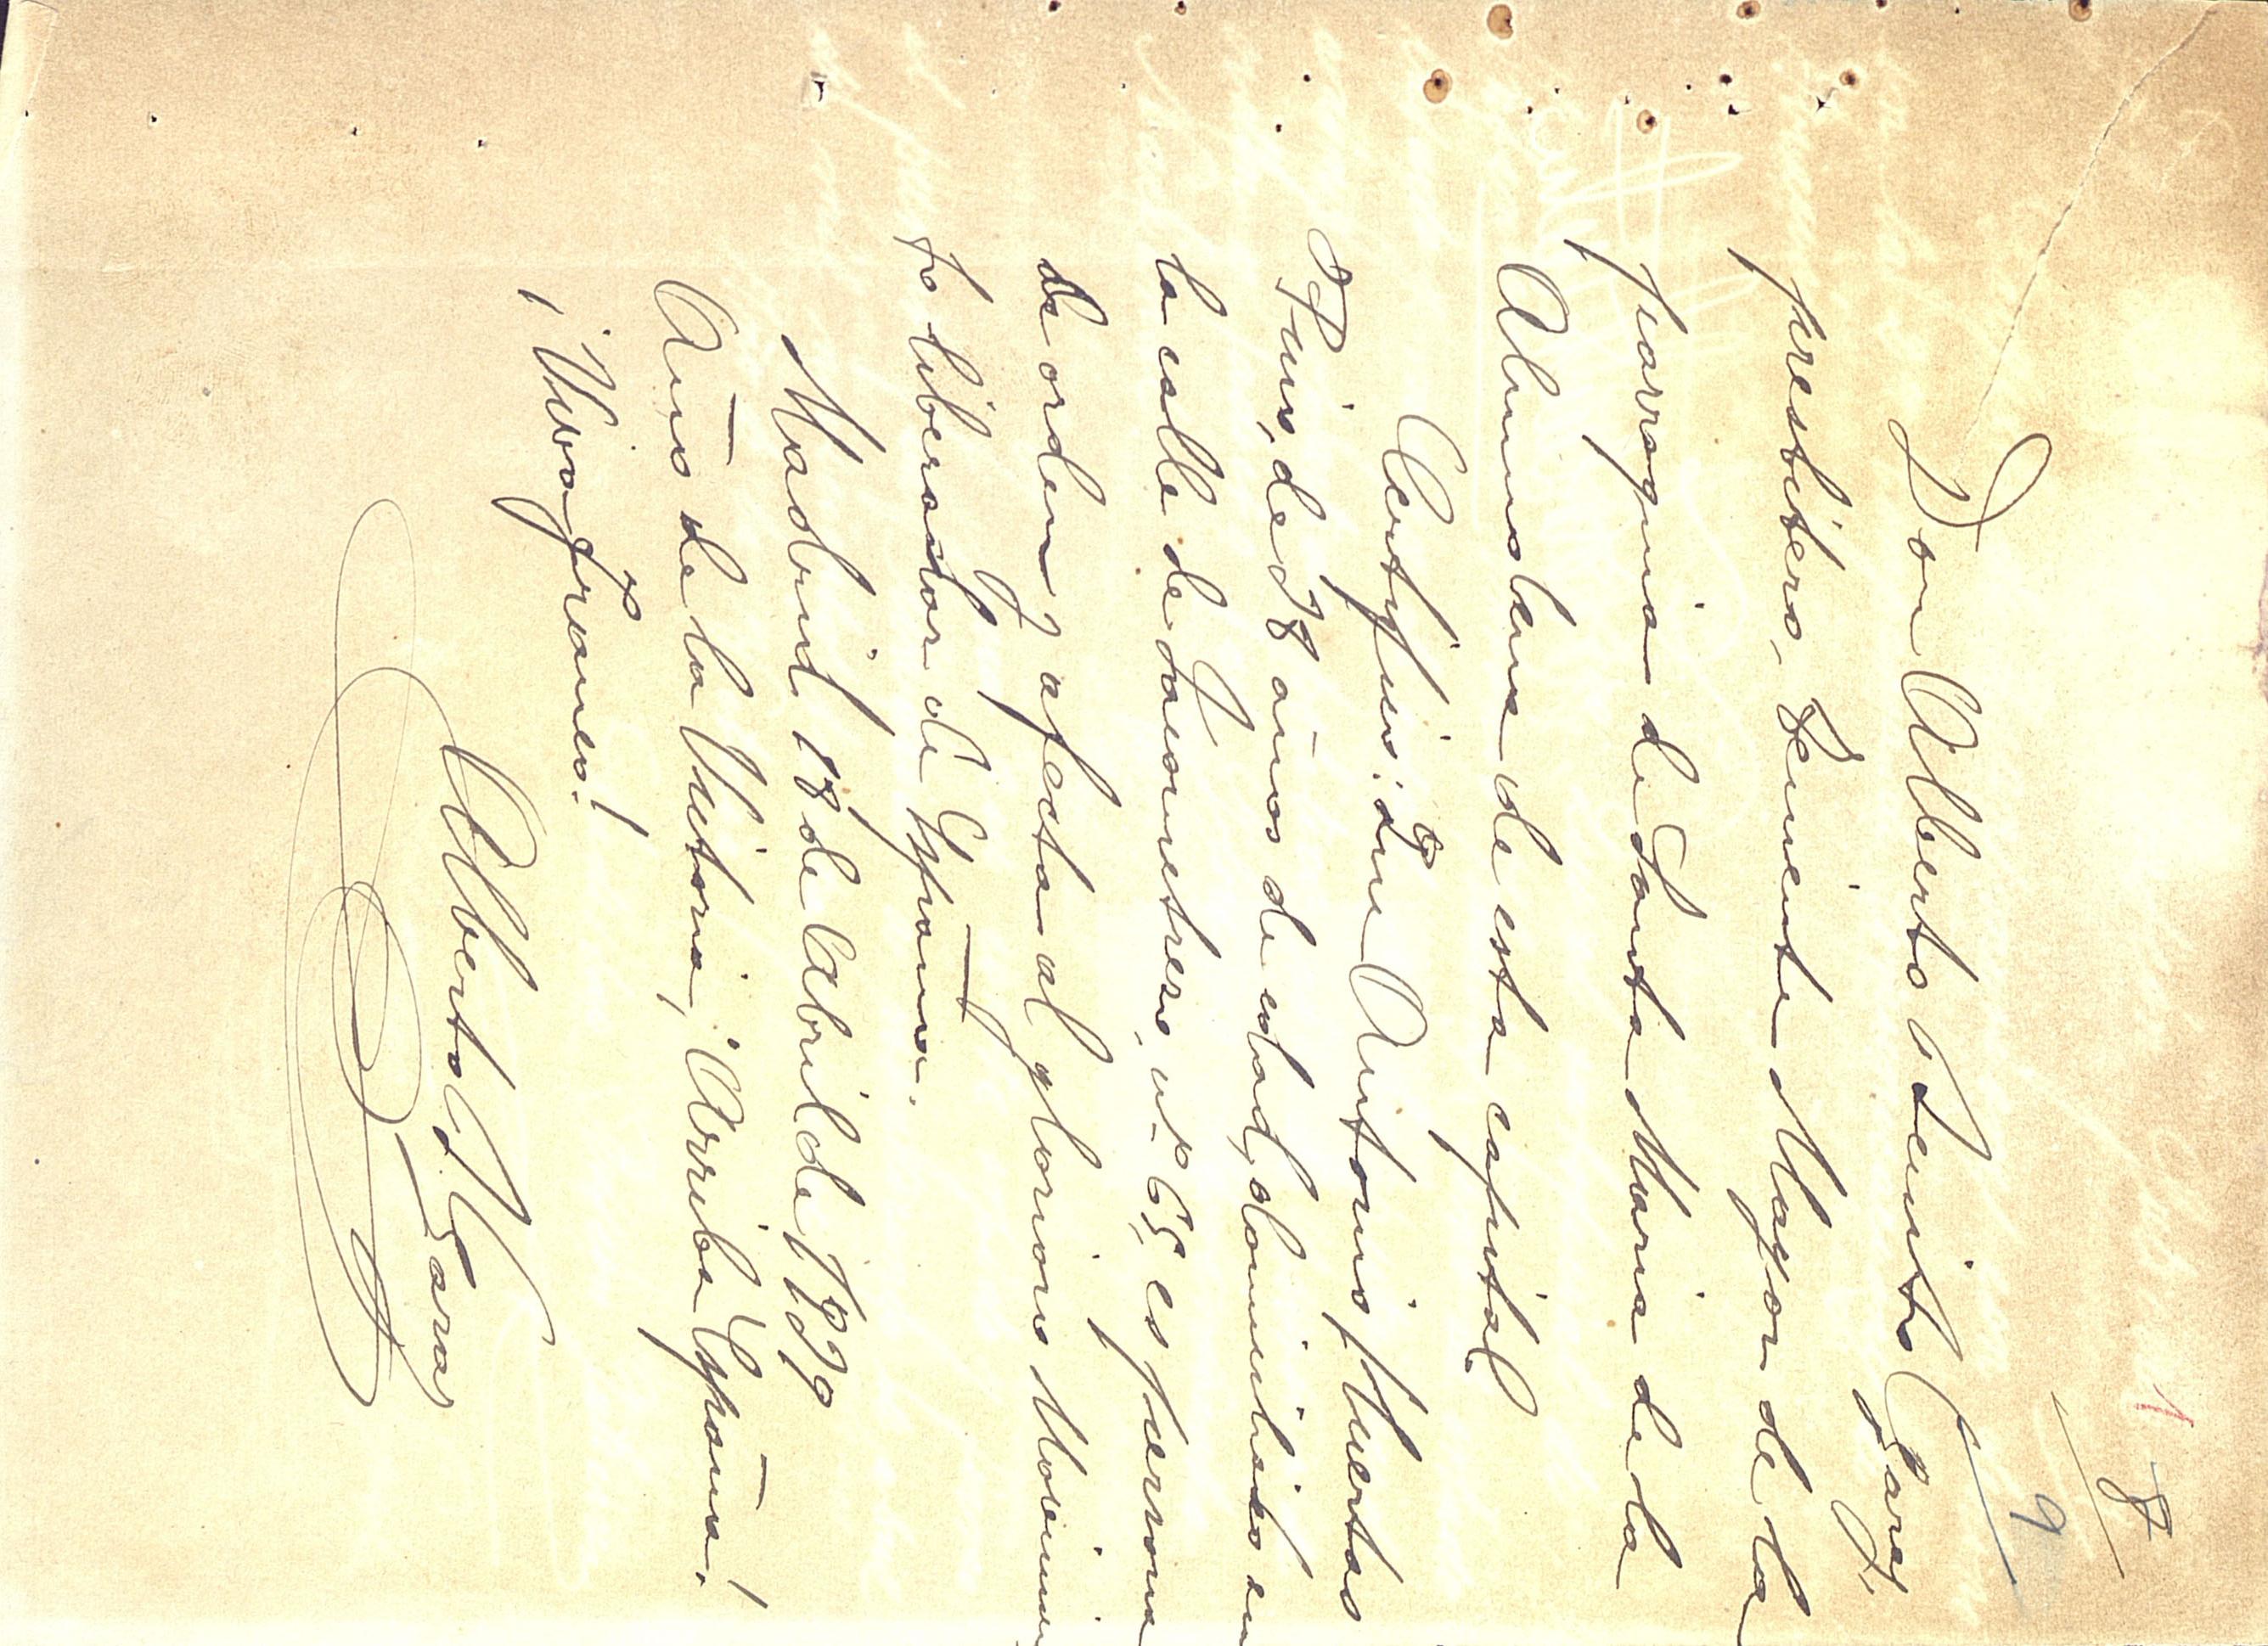 8
9
1
Don Alberto Benito Garay,
presbítero, Teniente Mayor de la
parroquia de Santa Maria de la
Almudena de esta capital
Certifico: Que Antonio Huertas
Pino, de 38 años de edad, domiciliado en
la calle de Jacometrezo, nº 65, es persona
de orden y afecta al glorioso Movimien
to liberador de España.
Madrid 18 de Abril de 1939
Año de la Victoria, ¡Arriba España!
¡Viva Franco!
Alberto B. Garay